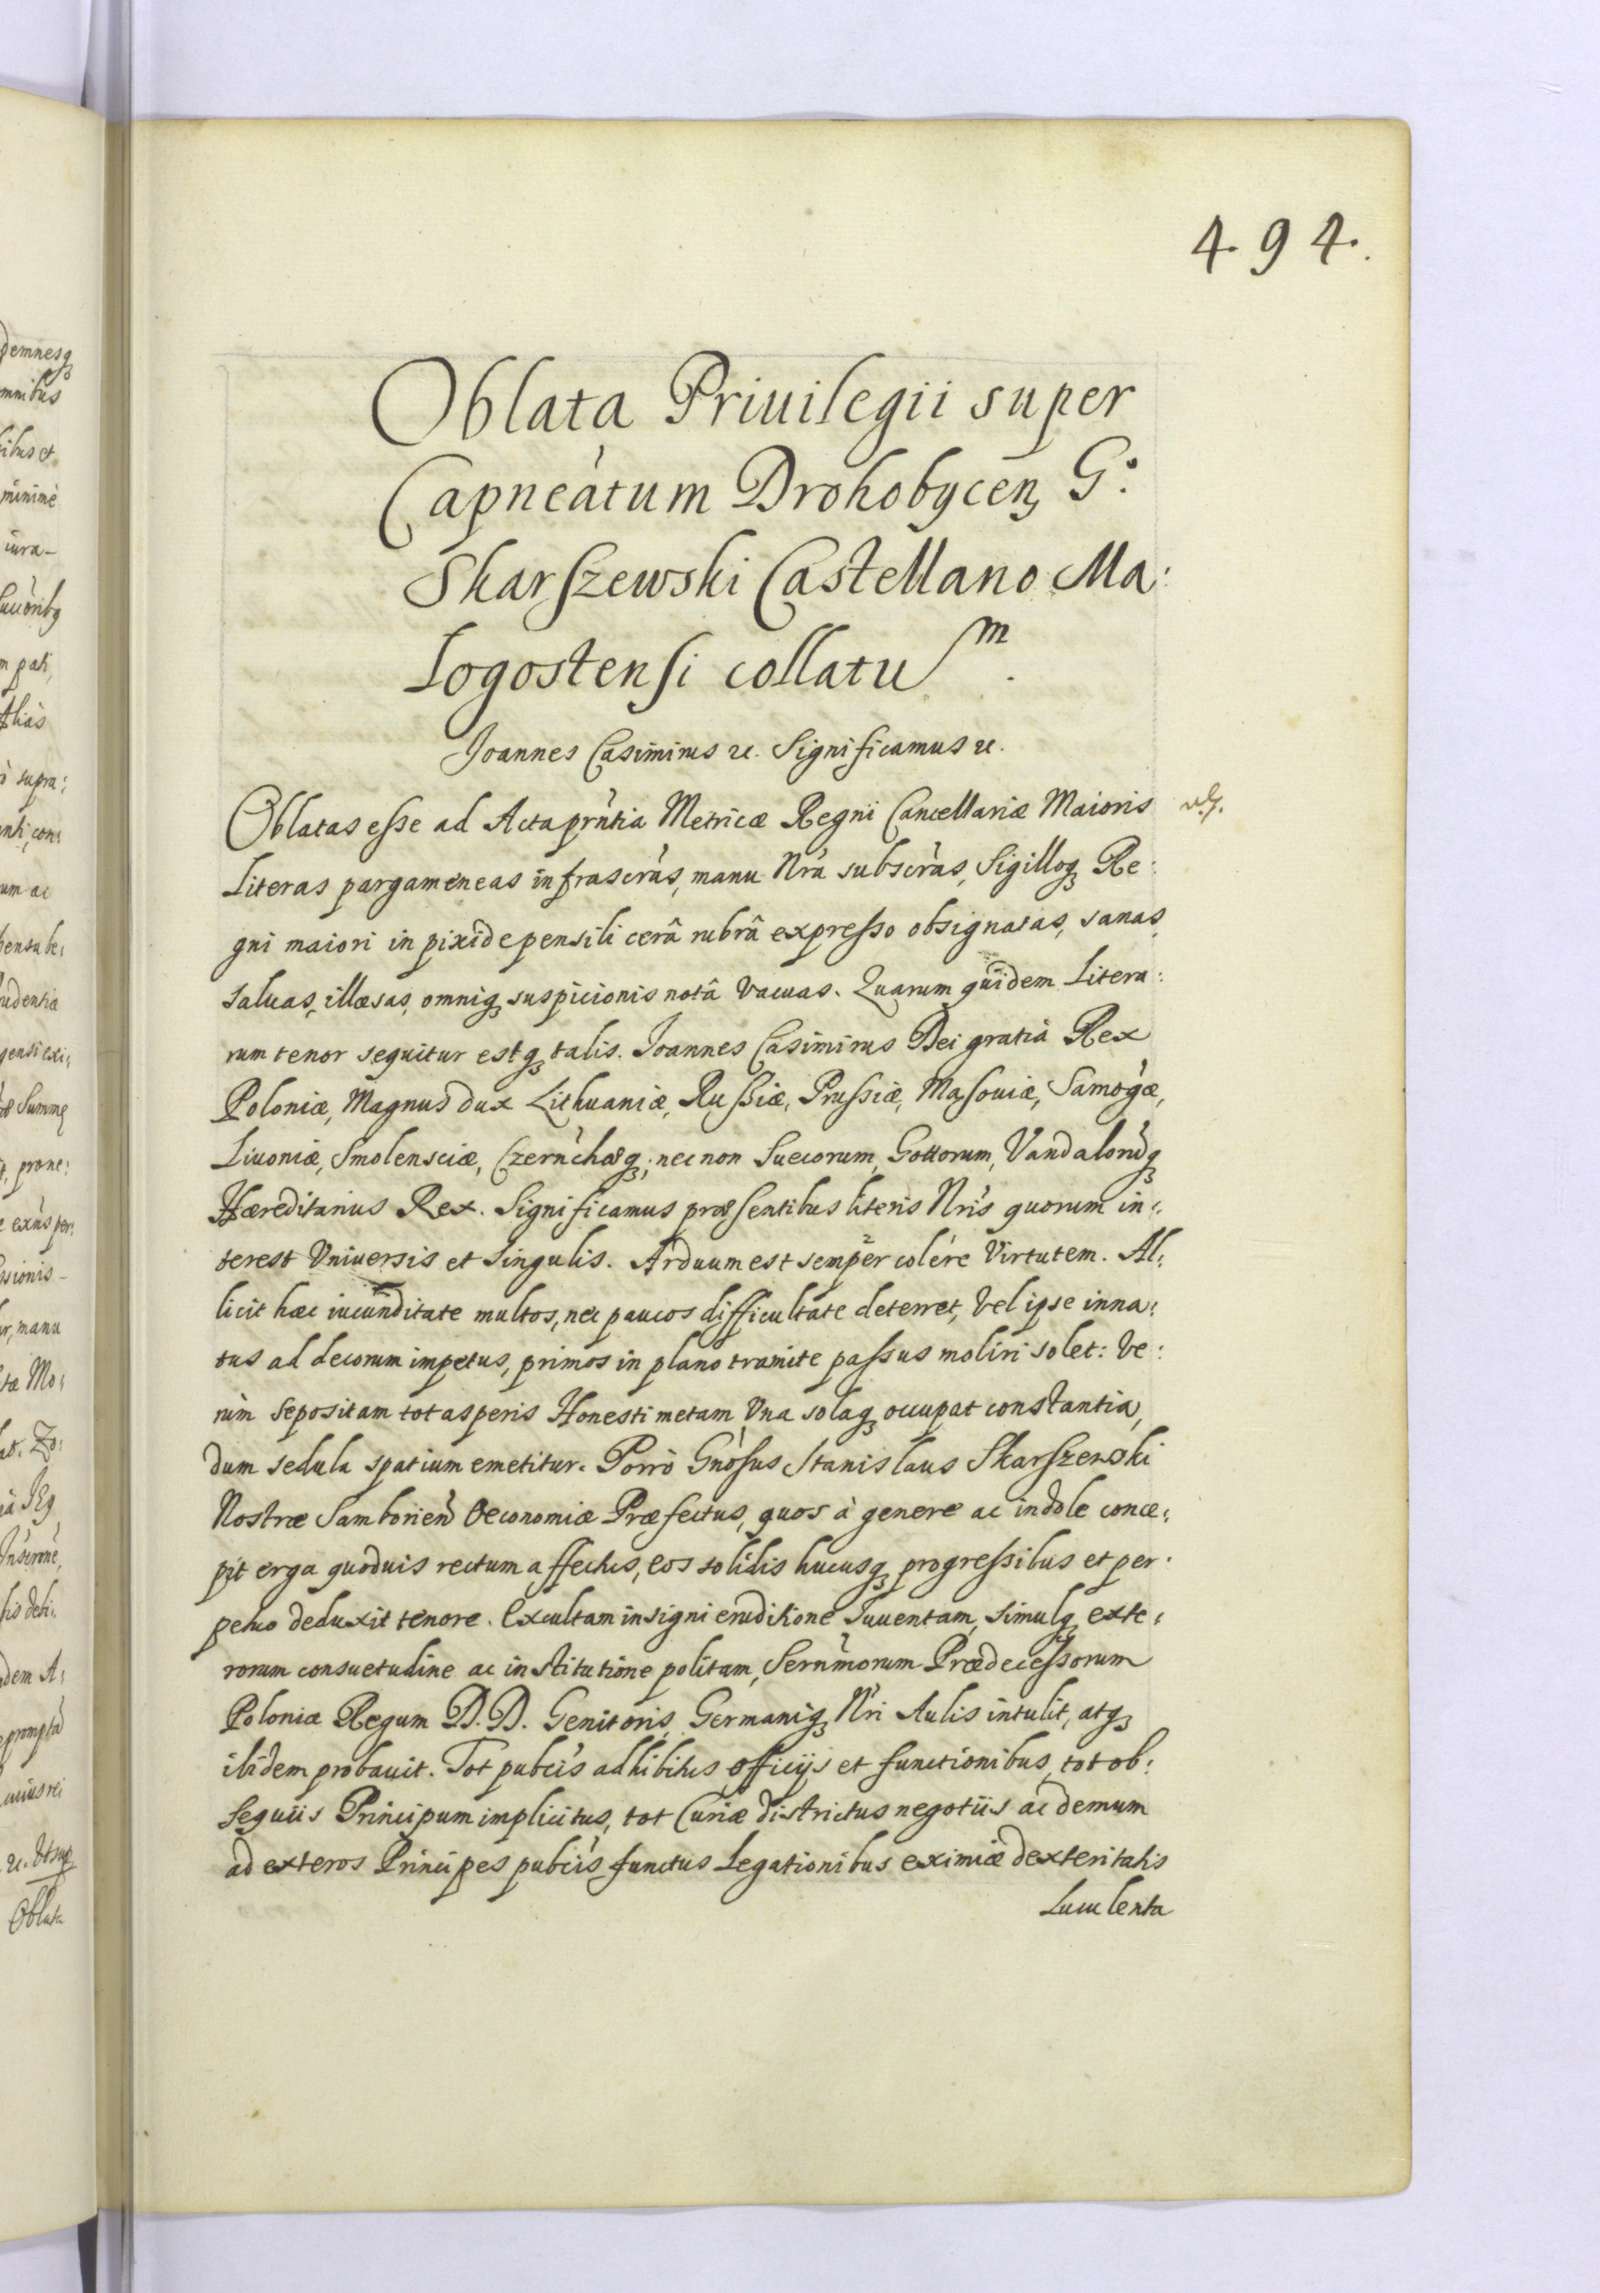 494.
Oblata Priuilegii super
Capneàtum Drohobycen, G.
Skarszewski Castellano Ma:
logostensi collatum.
Joannes Casimirus etc. Significamus etc.
Oblatas esse ad Acta prñtia Metricæ Regni Cancellariæ Maioris
Literas pargameneas infrascràs, manu Nrà subscràs, Sigilloq Re:
gni maiori in pixide pensili cerâ rubrâ expresso obsignatas, sanas,
saluas, illæsas, omniq suspicionis notâ vacuas. Quarum quidem Litera:
rum tenor sequitur estq talis. Joannes Casimirus Dei gratiâ Rex
Poloniæ, Magnus dux Lithuaniæ, Russiæ, Prussiæ, Masouiæ, Samogæ,
Liuoniæ, Smolensciæ, Czernchæq, nec non Suecorum, Gottorum, Vandalorúq
Hæreditarius Rex. Significamus præsentibus literis Nris quorum in:
terest Vniuersis et singulis. Arduum est semper colere Virtutem. Al:
licit hæc iucunditate multos, nec paucos difficultate deterret, Vel ipse inna:
tus ad decorum impetus, primos in plano tramite passus moliri solet: Ve:
rùm sepositam tot asperis Honesti metam Vna solaq occupat constantia,
dum sedula spatium emetitur. Porrò Gnosus Stanislaus Skarszewski
Nostræ Samborien Oeconomiæ Præfectus, quos à genere ac indole conce:
pit erga quoduis rectum affectus, eos solidis hucusq progressibus et per:
petuo deduxit tenore. Excultam insigni eruditione Juuentam, simulq exte:
rorum consuetudine ac institutione politam, Sernmorum Prædecessorum
Poloniæ Regum D.D. Genitoris, Germaniq Nri Aulis intulit, atq
ibidem probauit. Tot pubcis adhibitus officijs et functionibus, tot ob:
sequiis Principum implicitus, tot Curiæ districtus negotiis ac demum
ad exteros Principes pubcis functus Legationibus eximiæ dexteritatis
Luculenta